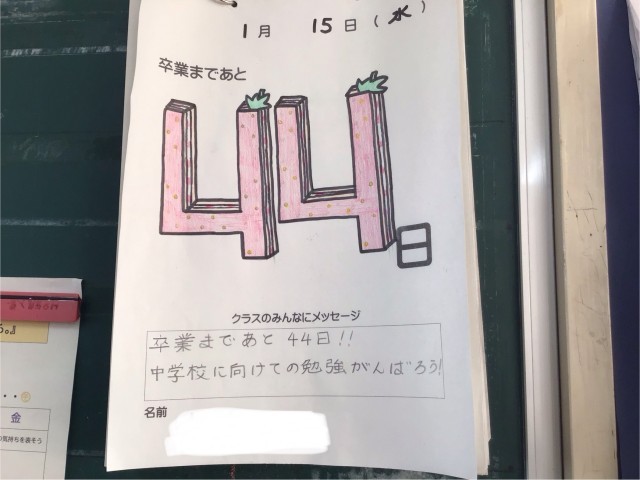 1月 15日(水)
卒業まであと
44日
クラスのみんなにメッセージ
卒業まであと 44日!!
中学校に向けての勉強がんばろう!
名前
金
の気持ちを表そう